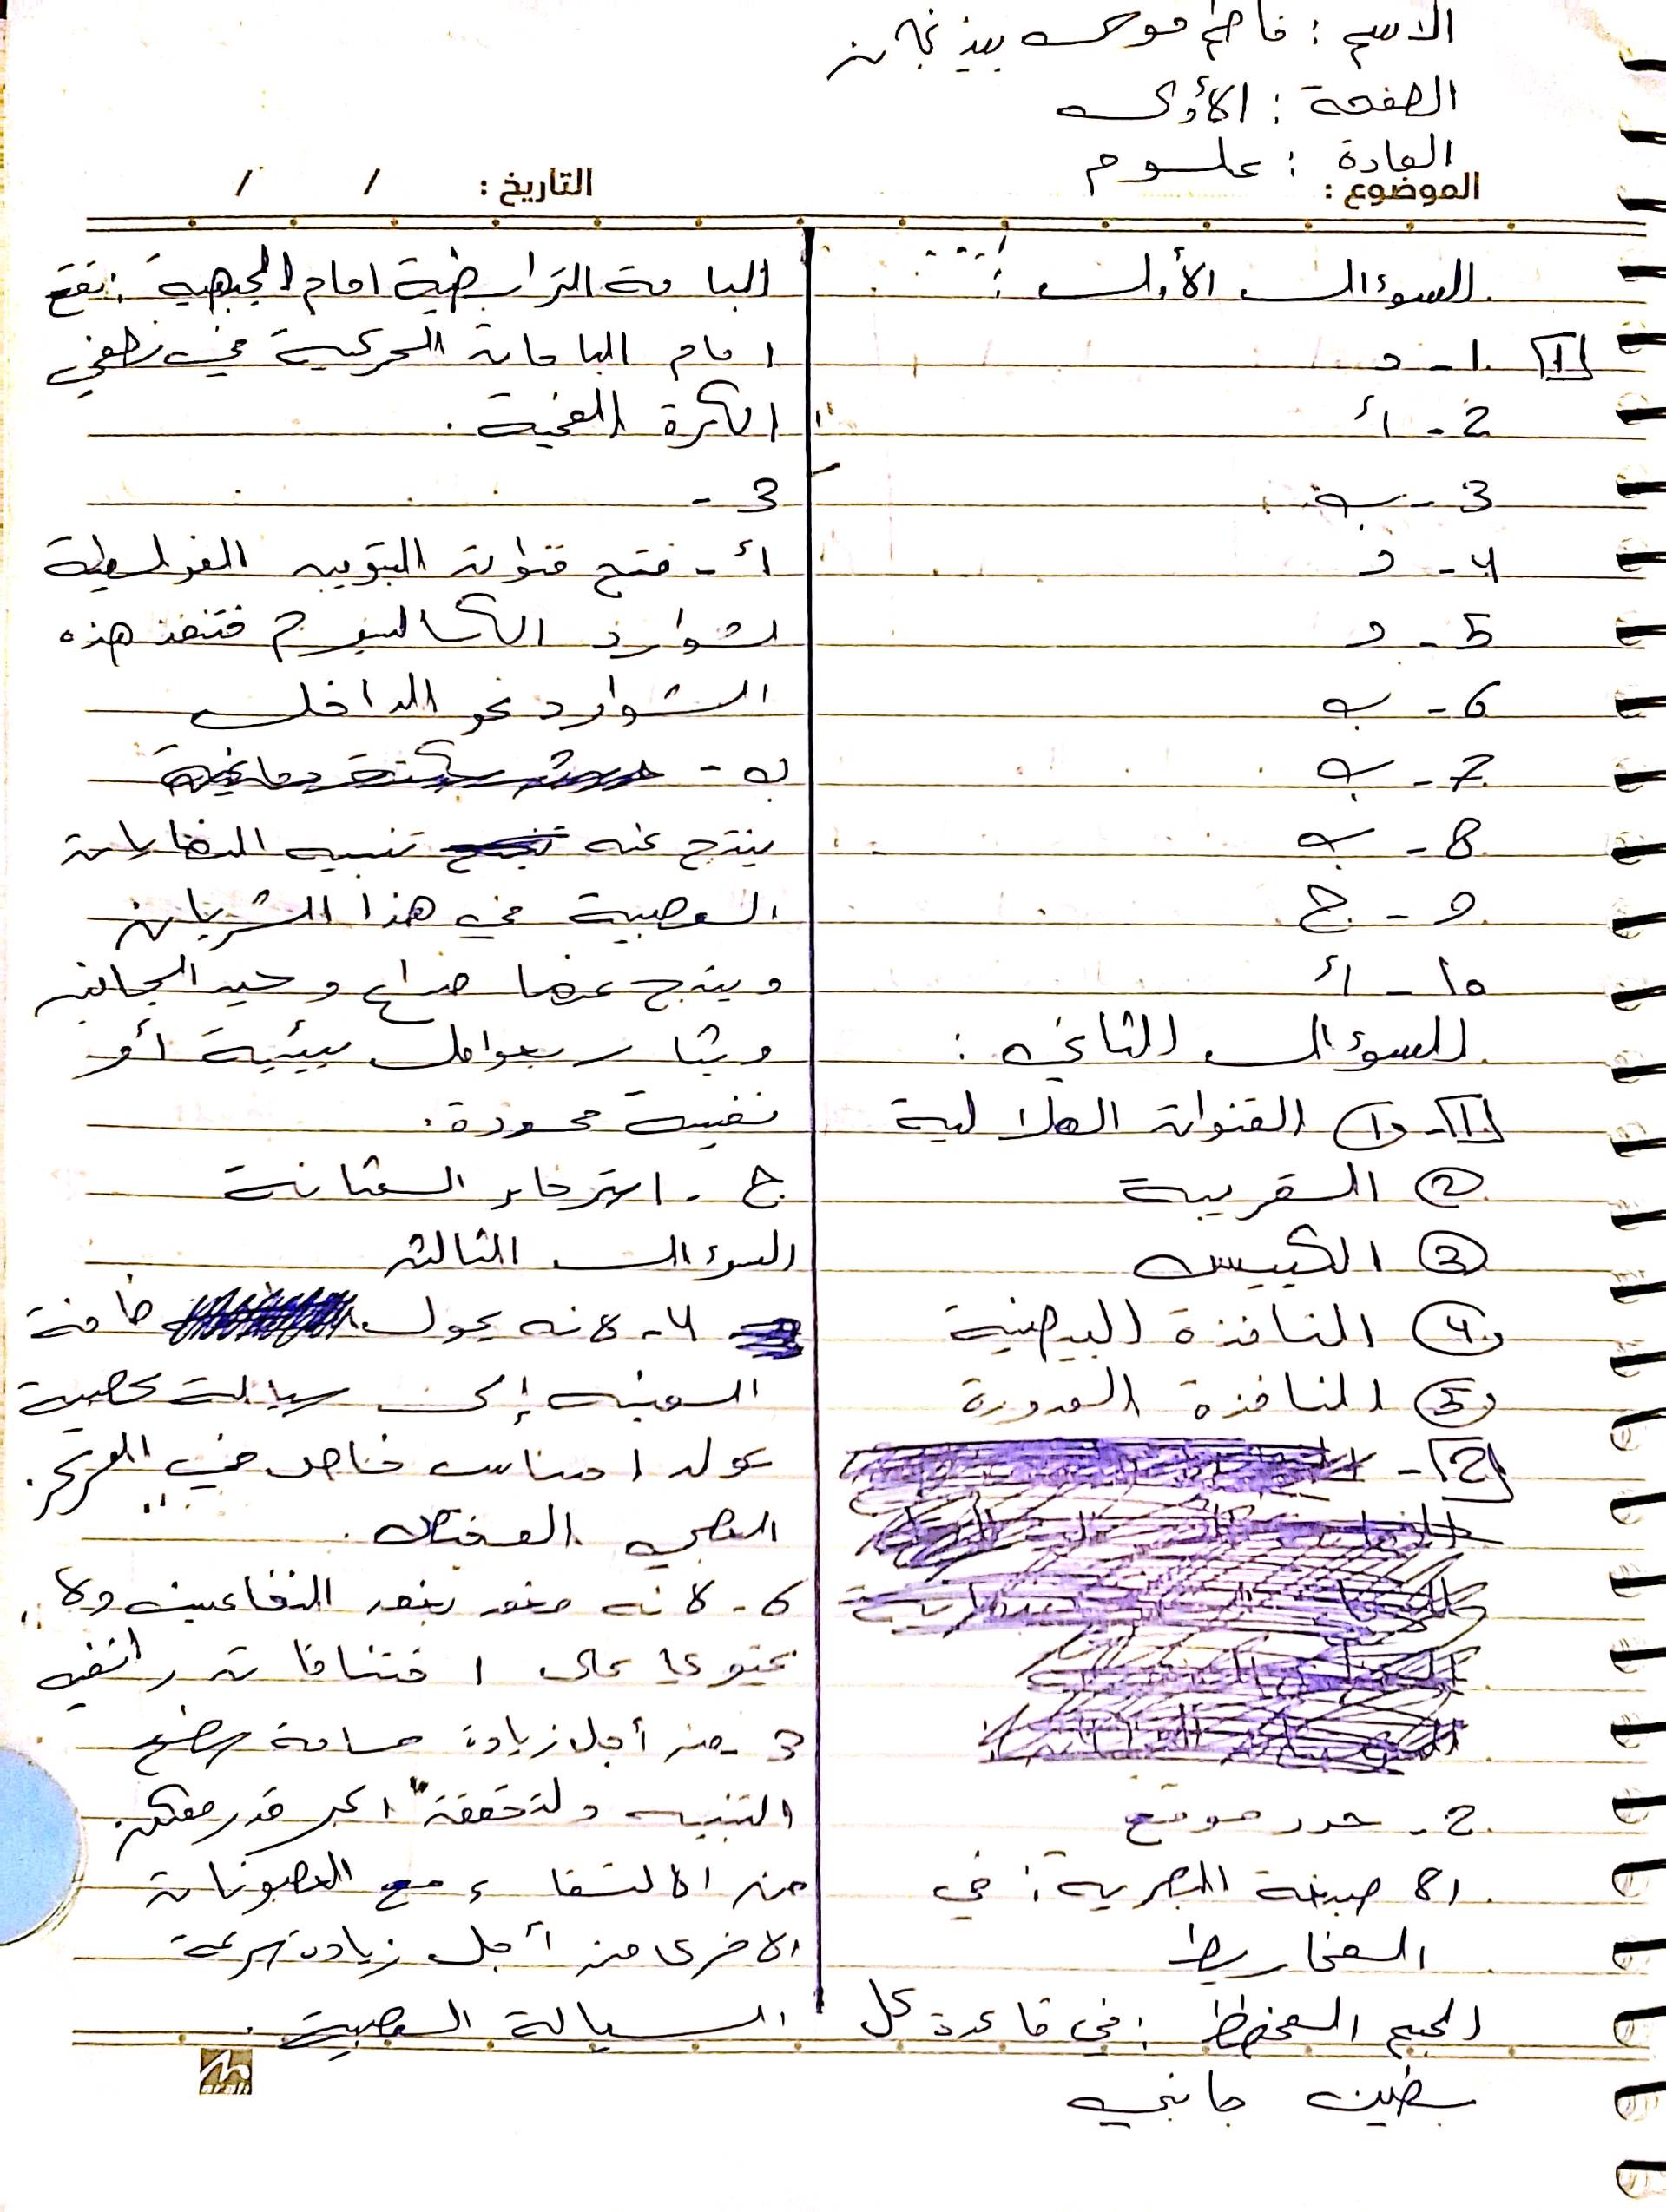 الاسم : فاطم موسى بيذنجان
الصفحة : الأولى
المادة : علوم
الموضوع :
التاريخ : / /
السؤال الأول :
1 1 - د
2 - أ
3 - ب
4 - د
5 - د
6 - ب
7 - ب
8 - ب
9 - ج
10 - أ
السؤال الثاني :
1 - 1 القنوات الهلالية
2 القريبة
3 الكييس
4 النافذة البيضية
5 النافذة المدورة
2 -
2 - حدد موقع
الاصبغة البصرية : في
المخاريط
الجسم المخطط : في قاعدة كل
بطين جانبي
الباحة الترابطية امام الجبهية : تقع
امام الباحات الحركية في نصفي
الكرة المخية .
3 -
أ - فتح قنوات التبويب الفولطية
لشوارد الكالسيوم فتنفذ هذه
الشوارد نحو الداخل
ب -
ينتج عنه تنبيه النهايات
العصبية في هذا الشريان
وينتج عنها صداع وحيد الجانب
ويثار بعوامل بيئية أو
نفسية محددة .
ج - استرخاء المثانة
السؤال الثالث
4 - لانه يحول طاقة
المنبه إلى سيالة عصبية
تولد احساس خاص في المركز
العصبي المختص .
6 - لانه مغمد بغمد النخاعين ولا
يحتوي على اختناقات رانفيه
3 - من أجل زيادة مساحة سطح
التنبيه ولتحقق اكبر قدر ممكن
من الالتقاء مع العصبونات
الاخرى من أجل زيادة سرعة
السيالة العصبية .